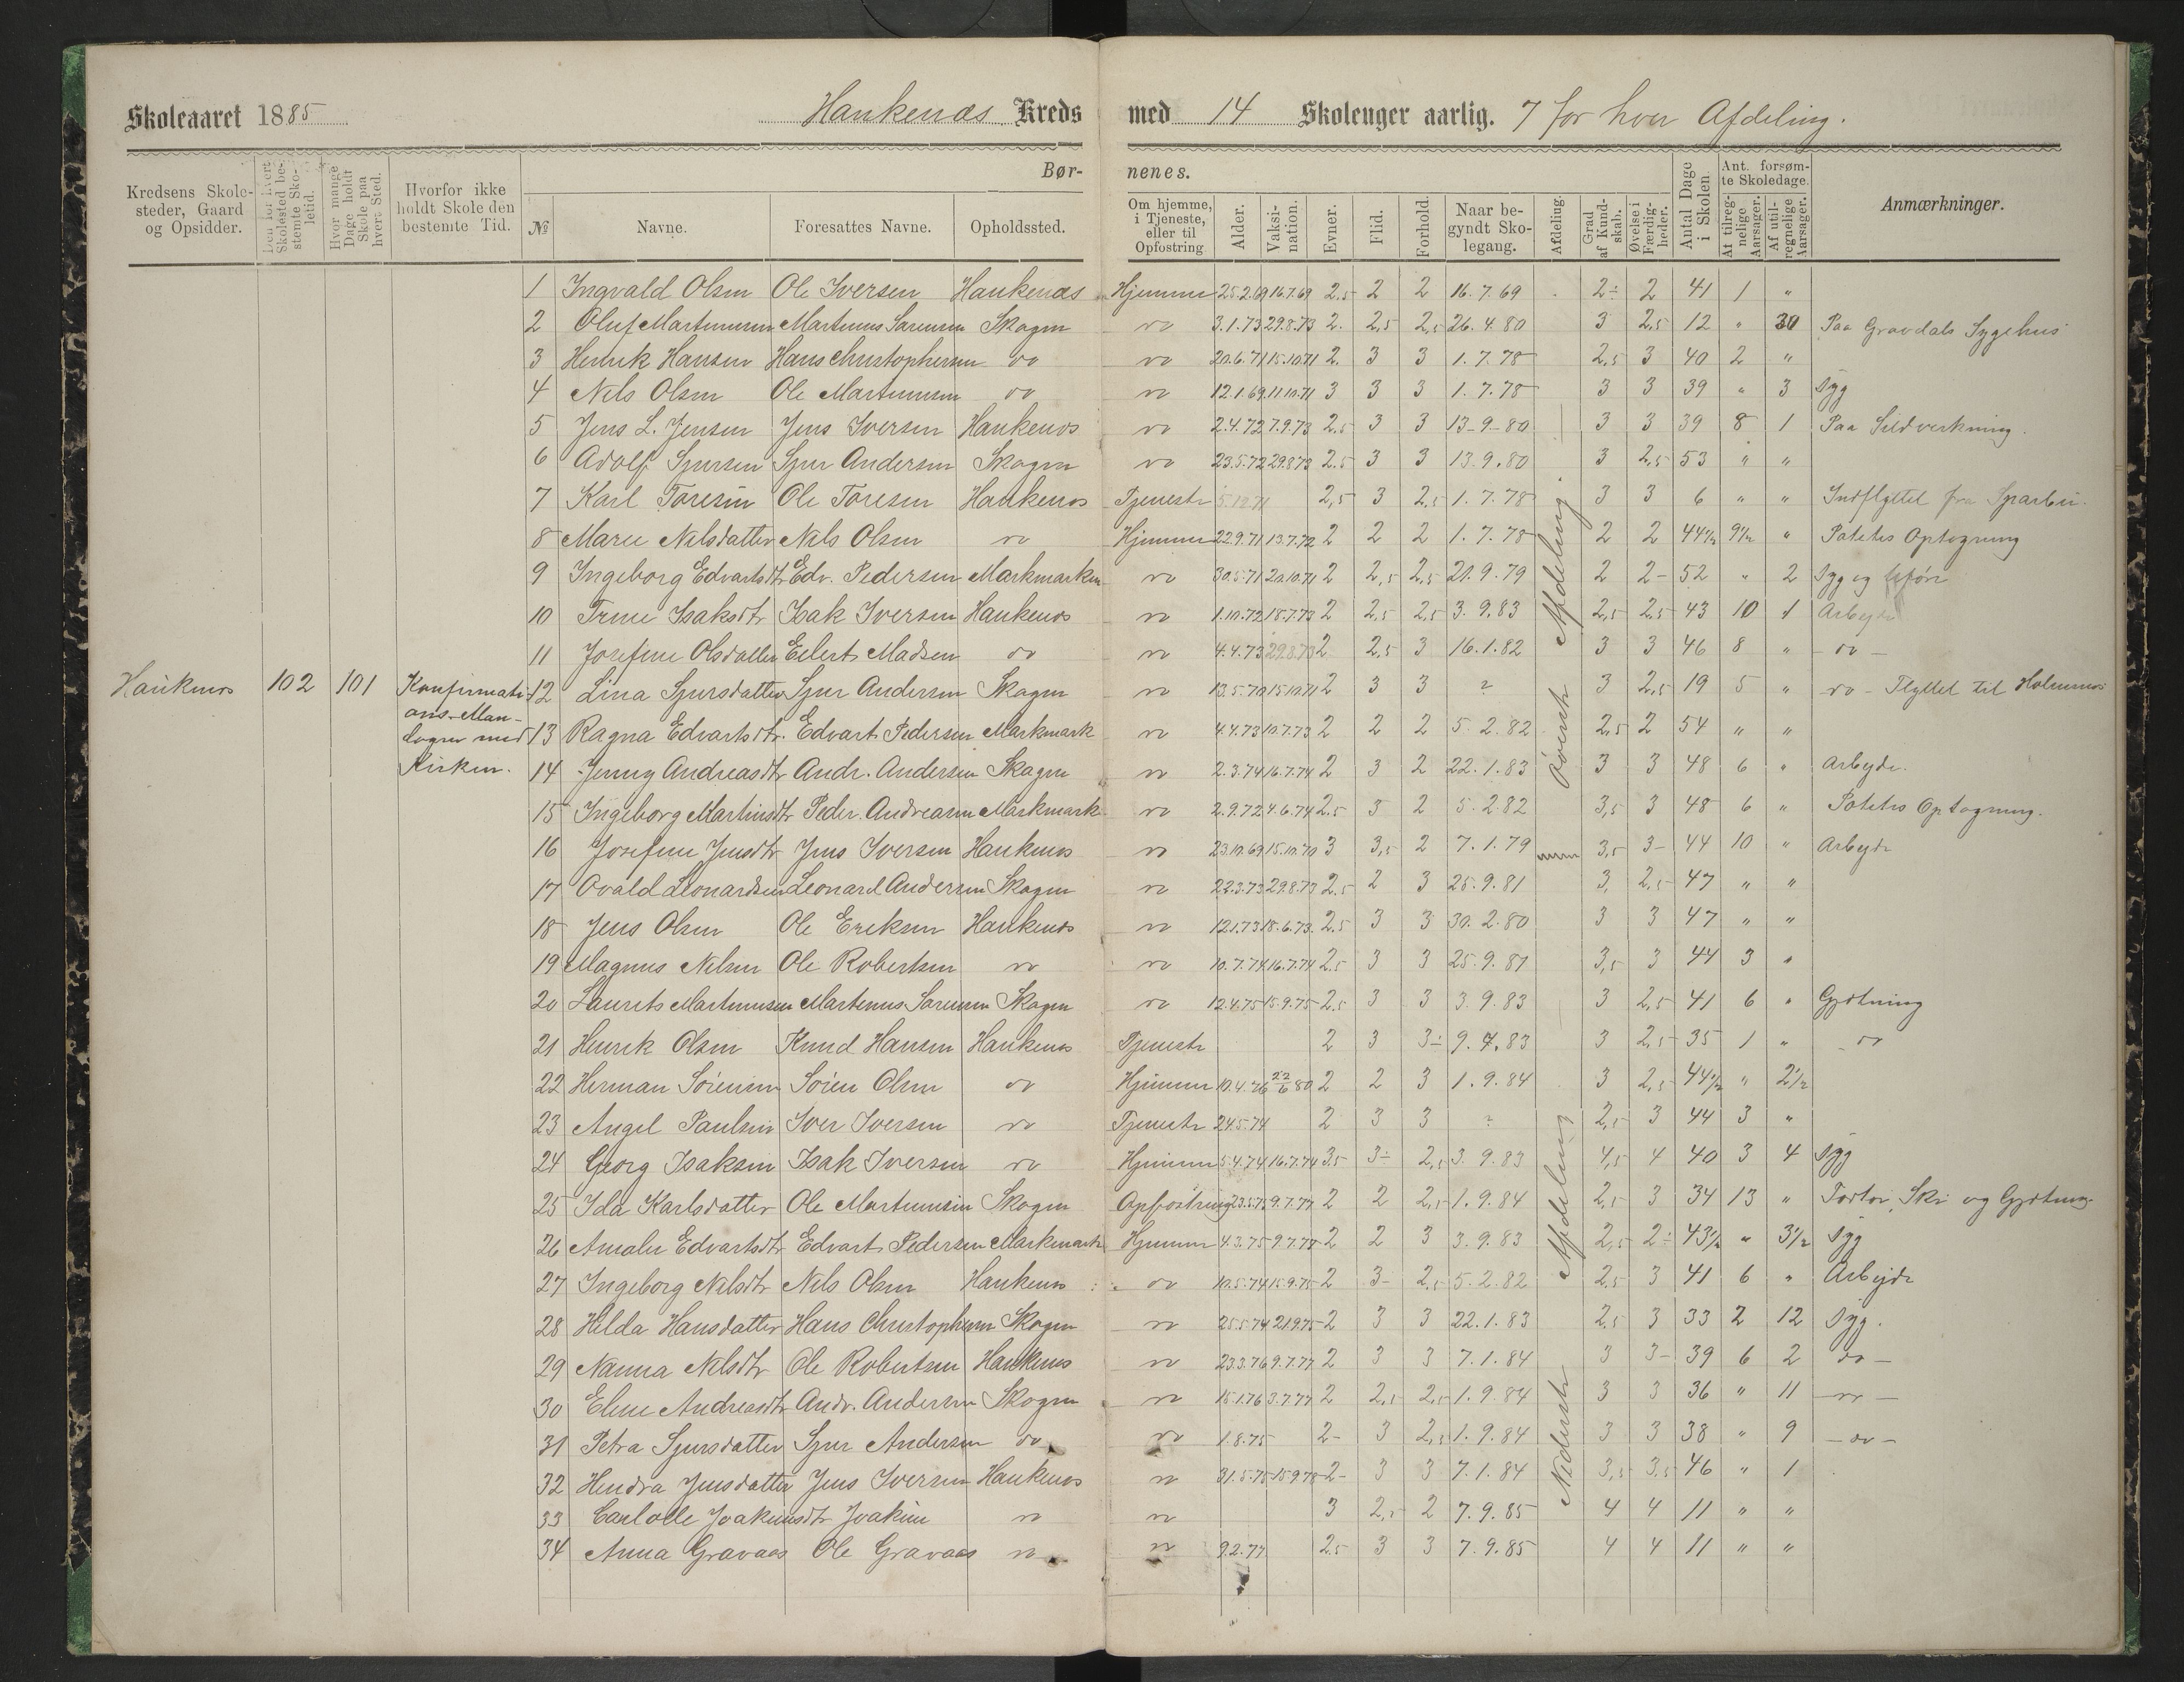 Skoleaaret 1885 Haukenæs Kreds med 14 Skoleuger aarlig. 7 for hver Afdeling.
Kredsens Skolesteder, Gaard og Opsidder. Den for hvert Skolested bestemte Skoletid. Hvor mange Dage holdt Skole paa hvert Sted. Hvorfor ikke holdt Skole den bestemte Tid. Børnenes.
№ Navne. Foresattes Navne. Opholdssted. Om hjemme, i Tjeneste, eller til Opfostring Alder. Vaksination. Evner. Flid. Forhold. Naar begyndt Skolegang. Afdeling. Grad af Kundskab. Øvelse i Færdigheder. Antal Dage i Skolen. Ant. forsømte Skoledage. Af tilregnelige Aarsager. Af utilregnelige Aarsager. Anmærkninger.
Hauknæs 102 101 Konfirmations-Manlogen med Kirken.
Øverste Afdeling.
1 Ingvald Olsen Ole Iversen Haukenæs Hjemme 25.2.69 16.7.69 2.5 2 2 16.7.69 2÷ 2 41 1 "
2 Oluf Martinussen Martinus Sørensen Skogen do 3.1.73 29.8.73 2. 2,5 2,5 26.4.80 3 2,5 12 " 30 Paa Gravdals Sygehus
3 Henrik Hansen Hans Christophersen do do 20.6.71 15.10.71 2. 3 3 1.7.78 2,5 3 40 2 "
4 Nils Olsen Ole Martinussen do do 12.1.69 11.10.71 3 3 3 1.7.78 3 3 39 " 3 Syg
5 Jens L. Jensen Jens Iversen Haukenæs do 2.4.72 7.9.73 2.5 3 3 13-9-80 3 3 39 8 1 Paa Sildverkning.
6 Adolf Sjursen Sjur Andersen Skogen do 23.5.72 29.8.73 2.5 3 3 13.9.80 3 2,5 53 " "
7 Karl Toresen Ole Toresen Haukenæs Tjeneste 5.12.71 2,5 3 2,5 1.7.78 3 3 6 " " Indflyttet fra Sparbu.
8 Marie Nilsdatter Nils Olsen do Hjemme 22.9.71 13.7.72 2 2 2 1.7.78 2 2 44½ 9½ " Potetes Optagning
9 Ingeborg Edvartsdtr Edv. Pedersen Markmarken do 30.5.71 20.10.71 2 2,5 2,5 21.9.79 2 2- 52 " 2 Syg og uføre
10 Trine Isaksdtr Isak Iversen Haukenæs do 1.10.72 18.7.73 2 2,5 2,5 3.9.83 2,5 2,5 43 10 1 Arbeyde
11 Josefine Olsdatter Eilert Madsen do do 4.4.73 29.8.73 2 2,5 3 16.1.82 3 3 46 8 " - do -
12 Lina Sjursdatter Sjur Andersen Skogen do 13.5.70 15.10.71 2 3 3 ? 3 2,5 19 5 " - do - Flyttet til Holmnes
13 Ragna Edvartsdtr. Edvart Pedersen Markmark do 4.4.73 10.7.73 2 2 2 5.2.82 2,5 2 54 " "
14 Jenny Andreasdtr Andr. Andersen Skogen do 2.3.74 16.7.74 2 3 2 22.1.83 3 3 48 6 " Arbeyde.
15 Ingeborg Martinsdtr Peder Andreasen Markmark do 2.9.72 4.6.74 2.5 3 2 5.2.82 3,5 3 48 6 " Potetes Optagning.
16 Josefine Jensdtr Jens Iversen Haukenæs do 23.10.69 15.10.70 3 3,5 2 7.1.79 3,5 3- 44 10 " Arbeyde
Nederste Afdeling
17 Ovald Leonardsen Leonard Andersen Skogen do 22.3.73 29.8.73 2.5 2 3 25.9.81 3, 2,5 47 " "
18 Jens Olsen Ole Eriksen Haukenæs do 12.1.73 18.6.73 2.5 3 3 30.2.80 3 3 47 " "
19 Magnus Nilsen Ole Robertsen do do 10.7.74 16.7.74 2.5 3 3 25.9.81 3,5 3 44 3 "
20 Laurits Martinussen Martinus Sørensen Skogen do 12.4.75 15.9.75 2,5 3 3 3.9.83 3 2,5 41 6 " Gjætning
21 Henrik Olsen Knud Hansen Haukenæs Tjeneste 2 3 3÷ 9.7.83 3 2,5 35 1 " do
22 Herman Sørensen Sören Olsen do Hjemme 10.4.76 22/6 80 2 2 3 1.9.84 3 2,5 44½ " 2½
23 Angel Paulsen Iver Iversen do Tjeneste 24.5.74 2 3 3 ? 2,5 3 44 3 "
24 Georg Isaksen Isak Iversen do Hjemme 5.4.74 16.7.74 3.5 3÷ 2,5 3.9.83 4,5 4 40 3 4 Syg
25 Ida Karlsdatter Ole Martinussen Skogen Opfostring 23.5.75 9.7.77 2 2 2,5 1.9.84 2,5 3 34 13 " og Gjætning
26 Amalie Edvartsdtr Edvart Pedersen Markmark Hjemme 4.3.75 9.7.77 2 2 3 3.9.83 2,5 2÷ 43½ " 3½ Syg
27 Ingeborg Nilsdtr Nils Olsen Haukenæs do 10.5.74 15.9.75 2 3- 2,5 5.2.82 2,5 3 41 6 " Arbejde
28 Hilda Hansdatter Hans Christophersen Skogen do 25.5.74 21.9.75 2 3 3 22.1.83 2,5 3 33 2 12 Syg.
29 Nanna Nilsdtr Ole Robertsen Haukenæs do 23.3.76 9.7.77 2 3 3 7.1.84 3 3- 39 6 2 do -
30 Eline Andreasdtr Andr. Andersen Skogen do 15.1.76 3.7.77 2 2,5 2,5 1.9.84 3 3 36 " 11 - do -
31 Petra Sjursdatter Sjur Andersen do do 1.8.75 2- 3 2,5 1.9.84 3 3 38 " 9 - do -
32 Hendra Jensdatter Jens Iversen Haukenæs do 31.5.75 15.9.78 2- 3 3 7.1.84 3,5 3,5 46 " 1
33 Carlotte Joakimsdtr Joakim do do 3 2,5 2 7.9.85 4 4 11 " "
34 Anna Gravaas Ole Gravaas do do 9.2.77 2.5 3 3 7.9.85 4 4 11 " "